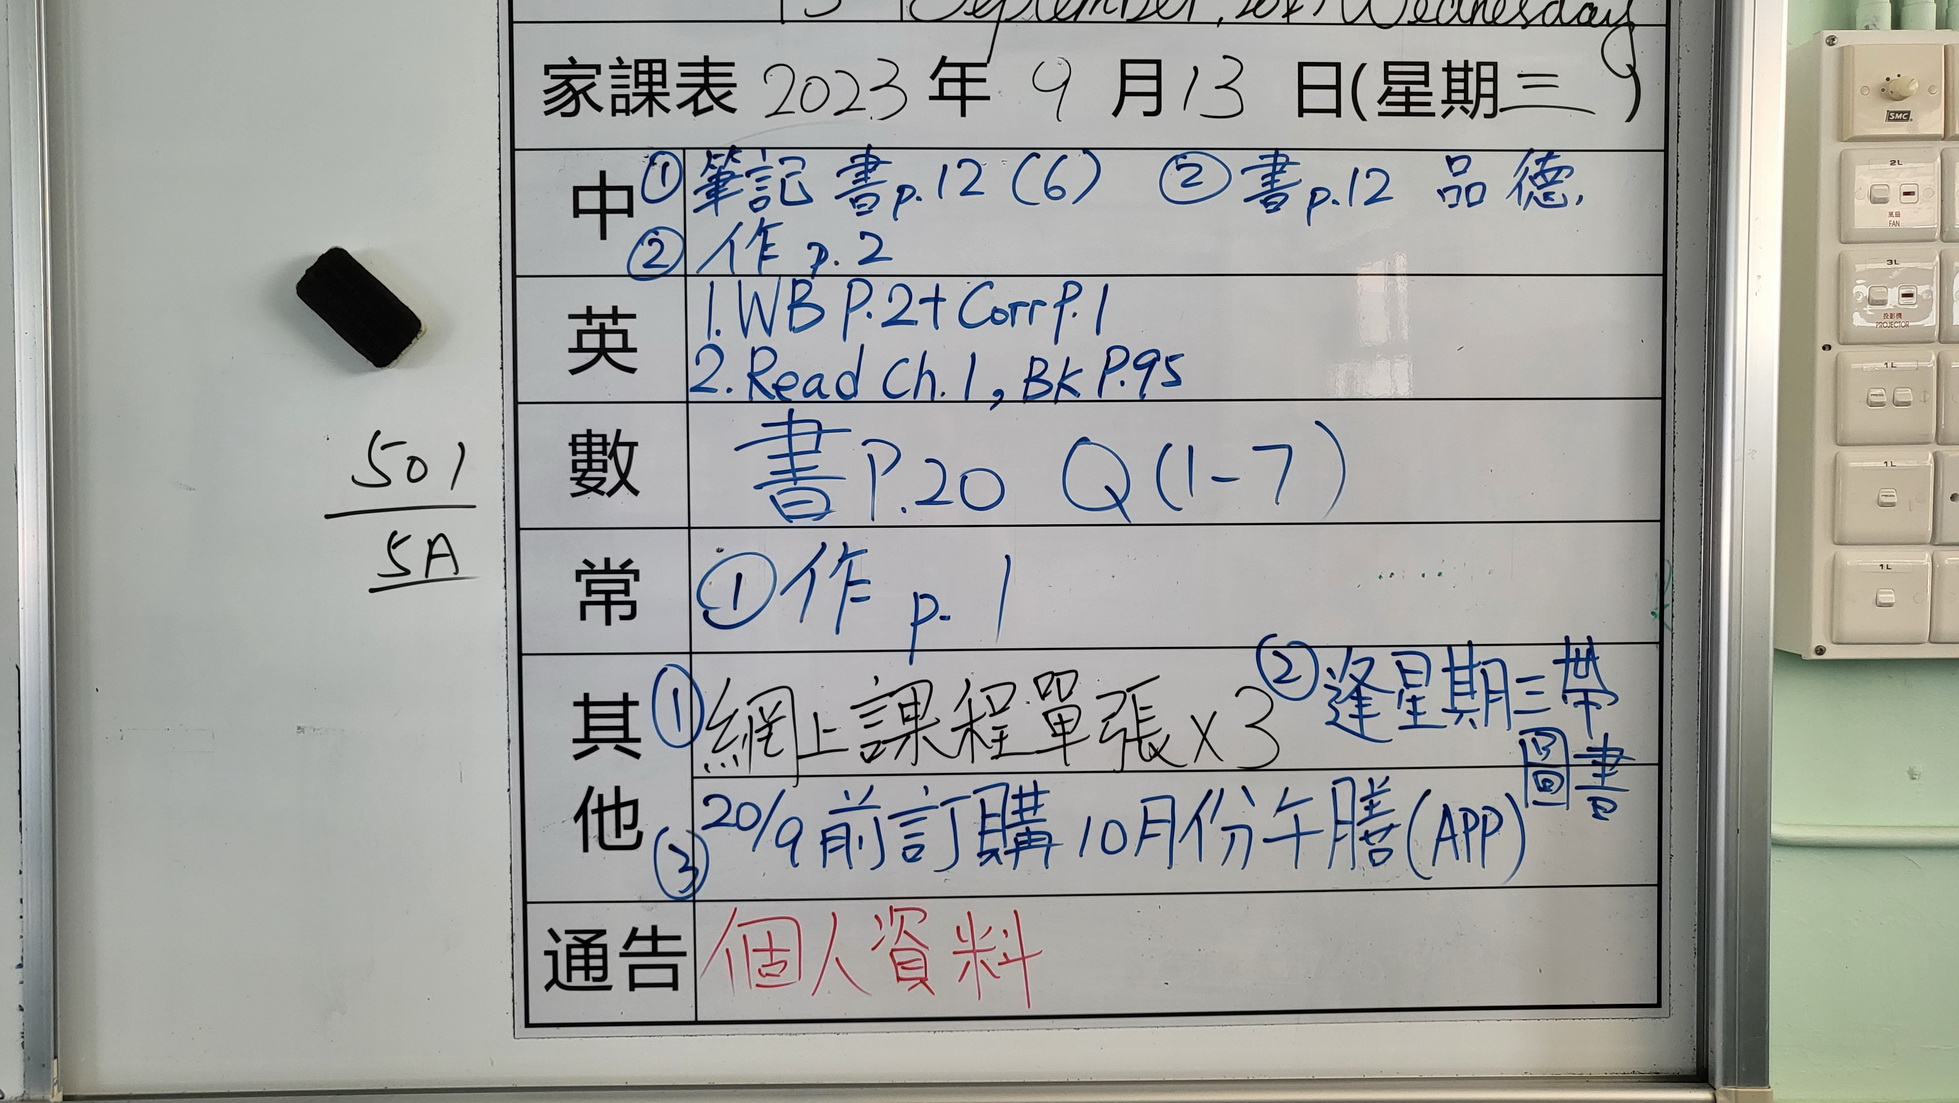 13 September, 2023 Wednesday
家課表 2023 年 9 月 13 日(星期三)
中 ① 筆記 書p.12 (6) ② 書p.12 品德.
② 作 p.2
英 1. WB P.2 + Corr P.1
2. Read Ch.1, BK P.95
數 書 P.20 Q (1-7)
常 ① 作 p. 1
501
5A
其他 ① 網上課程單張 x 3 ② 逢星期三帶
圖書
③ 20/9 前訂購 10月份午膳 (APP)
通告 個人資料
SMC
2L
風扇
FAN
3L
投影機
PROJECTOR
1L
1L
1L